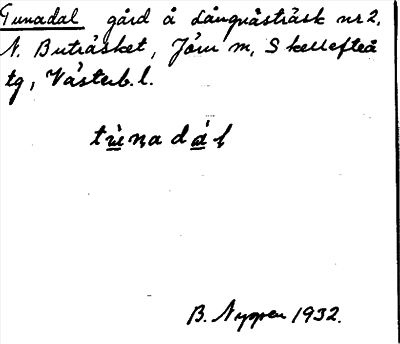 Tunadal gård å Långnästräsk nr 2,
N. Buträsket, Jörn sn, Skellefteå
tg, Västerb. l.
tùnadál
B. Nygren 1932.